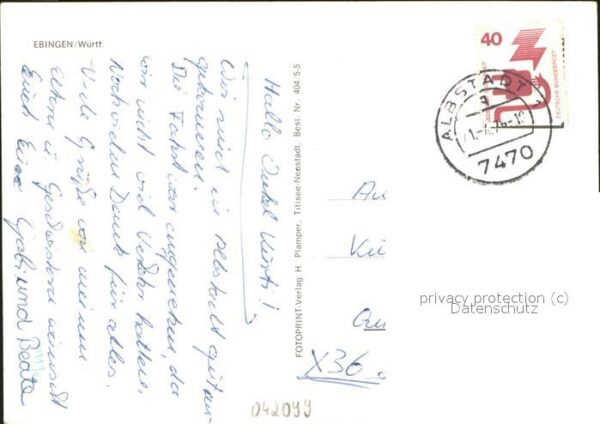 EBINGEN/Württ.
Hallo Onkel Kurti!
Wir sind in Albstadt gut an-
gekommen.
Die Fahrt war angenehm, da
wir nicht viel Verkehr hatten.
Noch vielen Dank für alles.
Viele Grüße von meinen
Eltern u. Geschwistern wünscht
Euch Eure Gabi und Beate
FOTOPRINT-Verlag H. Plamper, Titisee-Neustadt. Best. Nr. 404/5:5
40
DEUTSCHE BUNDESPOST
ALBSTADT 1
7470
An
Kü
X36
privacy protection (c)
Datenschutz
042099